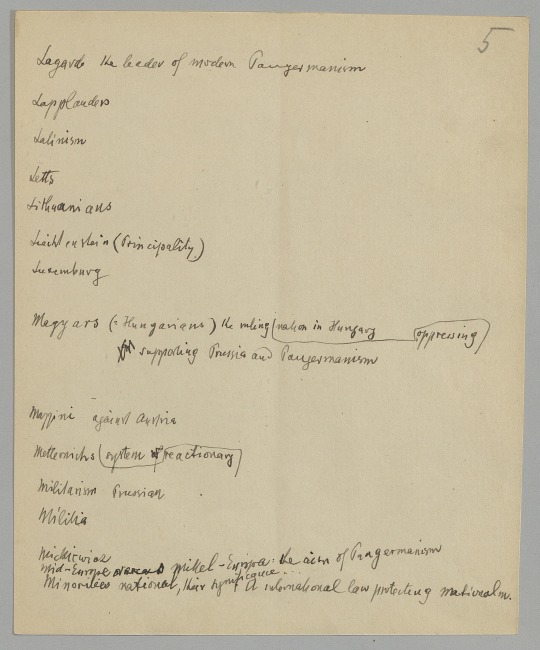 5
Lagarde the leader of modern Pangermanism
Lapplanders
Latinism
Letts
Lithuanians
Liechtenstein (Principality)
Luxemburg
Magyars (= Hungarians) the ruling nation in Hungary oppressing
supporting Prussia and Pangermanism
Mazzini against Austria
Metternichs system reactionary
Militarism Prussian
Militia
Mickiewicz
Mid-Europe Mittel-Europa: the aim of Pangermanism
Minorities national, their significance ... international law protecting national m.